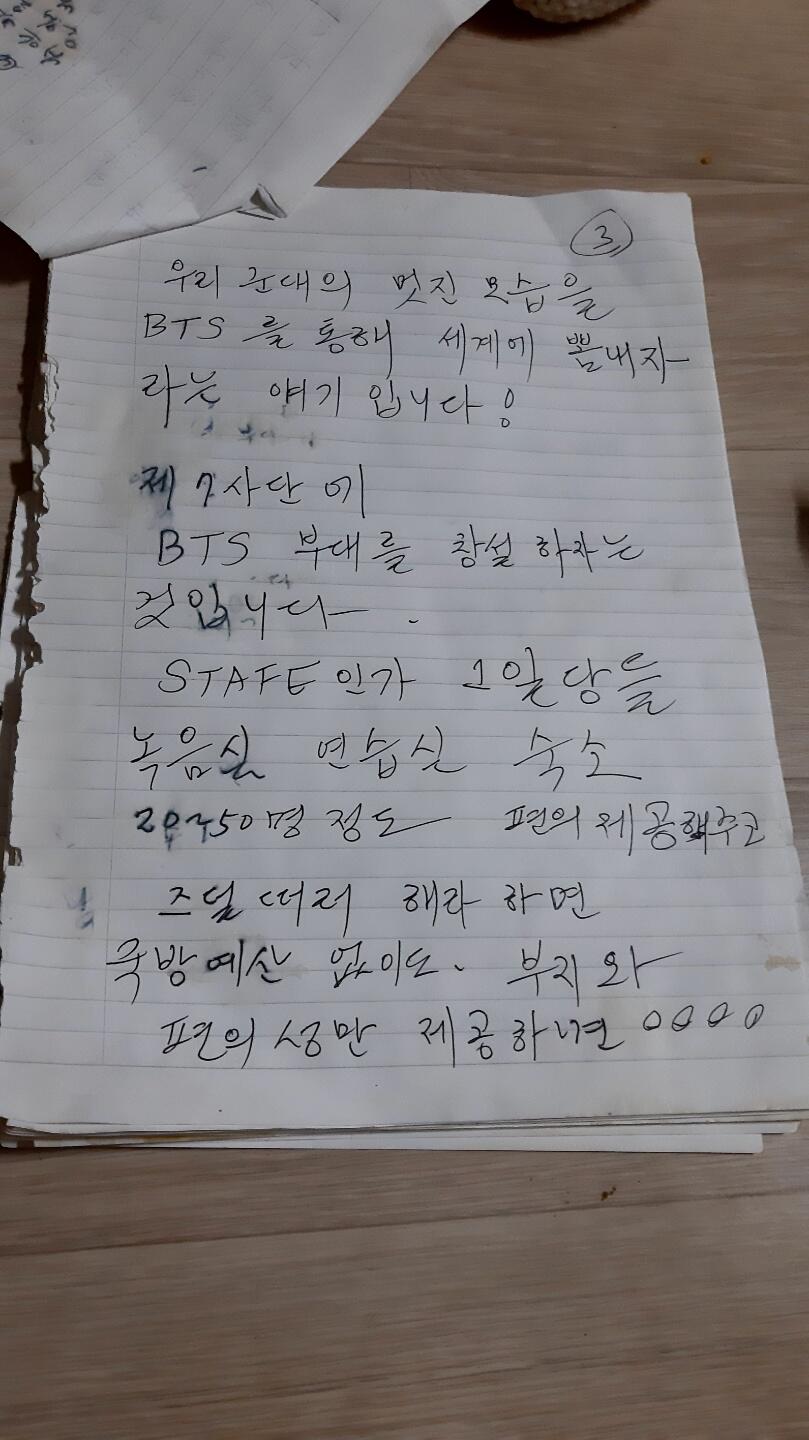 ③
우리 군대의 멋진 모습을
BTS 를 통해 세계에 뽐내자
라는 얘기 입니다!
제 7사단 에
BTS 부대를 창설 하자는
것입니다.
STAFE인가
녹음실 연습실 숙소
20~50명 정도 편의 제공해주고
해라 하면
국방예산 없이도. 부지와
편의성만 제공하면 0000